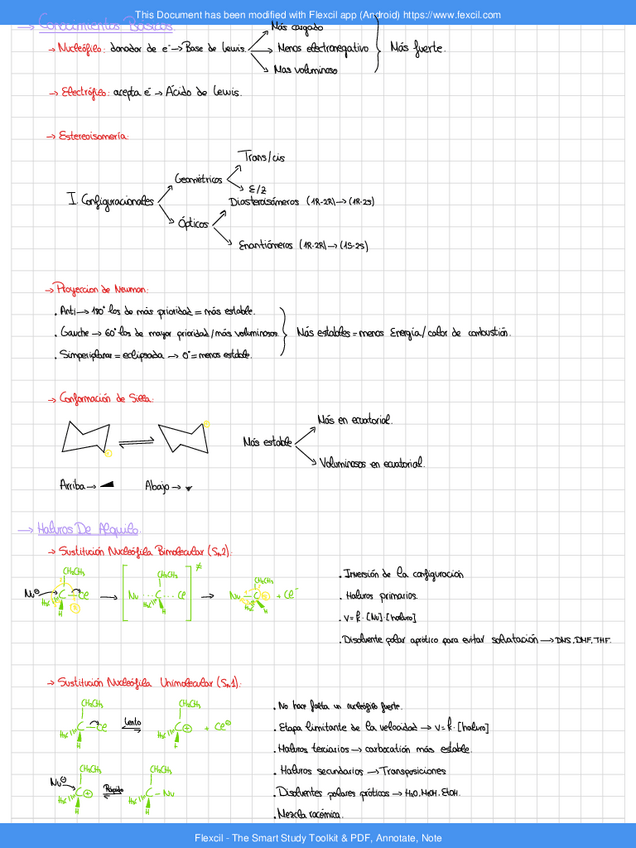 This Document has been modified with Flexcil app (Android) https://www.fexcil.com
→ Conocimientos Básicos
→ Nucleófilo: donador de e⁻ → Base de Lewis.
Más cargado
Menos electronegativo
Mas voluminoso
Más fuerte.
→ Electrófilo: acepta e⁻ → Ácido de Lewis.
→ Estereoisomería:
I. Configuracionales
Geométricos
Trans/cis
E/Z
Ópticos
Diasteroisómeros (1R-2R) → (1R-2S)
Enantiómeros (1R-2R) → (1S-2S)
→ Proyeccion de Neuman:
. Anti → 180° los de más prioridad = más estable.
. Gauche → 60° los de mayor prioridad/más voluminosos
. Simperiplanar = eclipsada → 0° = menos estable.
Más estables = menos Energía/calor de combustión.
→ Conformación de Silla:
Más estable
Más en ecuatorial.
Voluminosos en ecuatorial.
Arriba →
Abajo →
→ Haluros De Alquilo
→ Sustitución Nucleófila Bimolecular (SN2):
. Inversión de la configuración
. Haluros primarios.
. v = k · [Nu] · [haluro]
. Disolvente polar aprótico para evitar solvatación → DMS. DMF. THF.
→ Sustitución Nucleófila Unimolecular (SN1):
Lento
Rápido
. No hace falta un nucleófilo fuerte.
. Etapa limitante de la velocidad → v = k · [haluro]
. Haluros terciarios → carbocatión más estable.
. Haluros secundarios → Transposiciones
. Disolventes polares próticos → H₂O. MeOH. EtOH.
. Mezcla racémica.
Flexcil - The Smart Study Toolkit & PDF, Annotate, Note